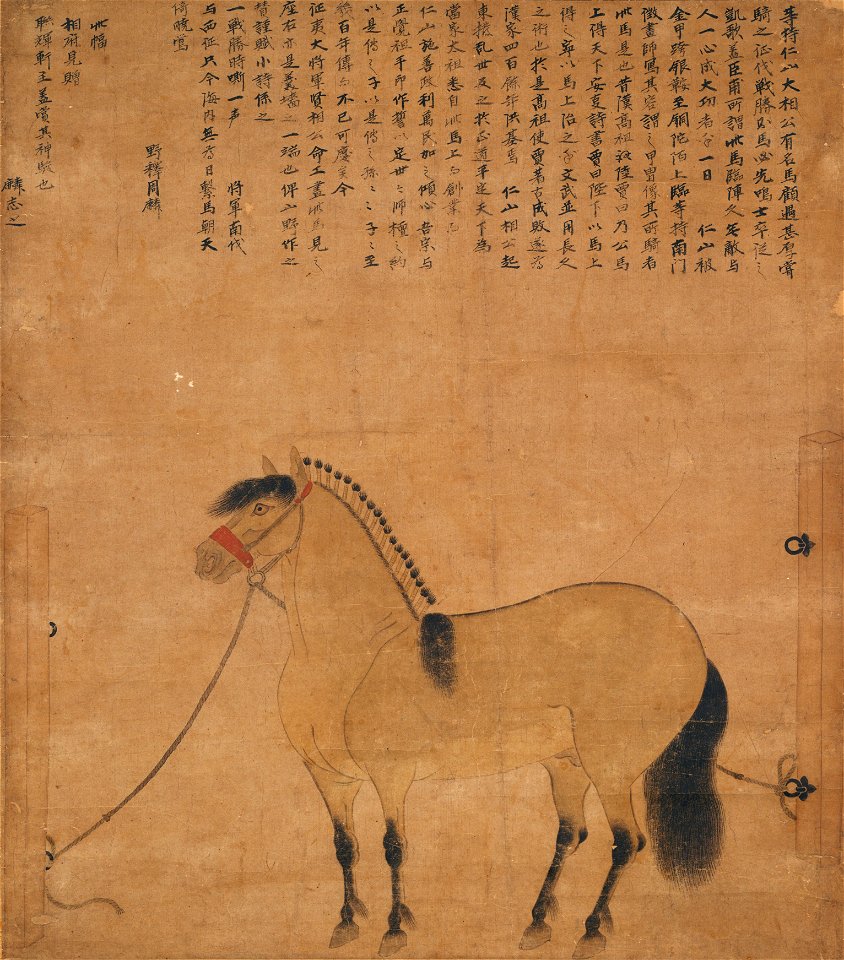 等持仁山大相公有名馬顧遇甚厚甞
騎之征伐戦勝則馬必先鳴士卒従之
凱歌蓋臣甫所謂此馬臨陣久無敵与
人一心成大功者也一日 仁山被
金甲跨銀鞍至銅陀陌上臨等持南門
徴畫師寫其容謂之甲冑像其所騎者
此馬是也昔漢高祖 陸賈曰乃公馬
上得天下安豆詩書賈曰陛下以馬上
得之寧以馬上治之乎文武並用長久
之術也於是高祖使賈著古成敗遂為
漢家四百餘年洪基焉 仁山相公起
東撥乱世反之於正道平定天下為
當家太祖悉自此馬上而創業也
仁山施善政利萬民加之傾心吾宗与
正覺祖 即作誓以定世々師檀之約
以是傳之子以是傳之孫々々子々至
幾百年傳而不已可慶矣今
征夷大将軍賢相公命工畫此馬見之
座右亦是羹墻之一端也俾山野作之
替謹賦小詩係之
一戦勝時嘶一声 将軍南伐
与西征只今海内無為日繋馬朝天
倚暁鳴
野釋周麟
此幅
相府見贈
聯輝軒主蓋賞其神駿也
麟志之